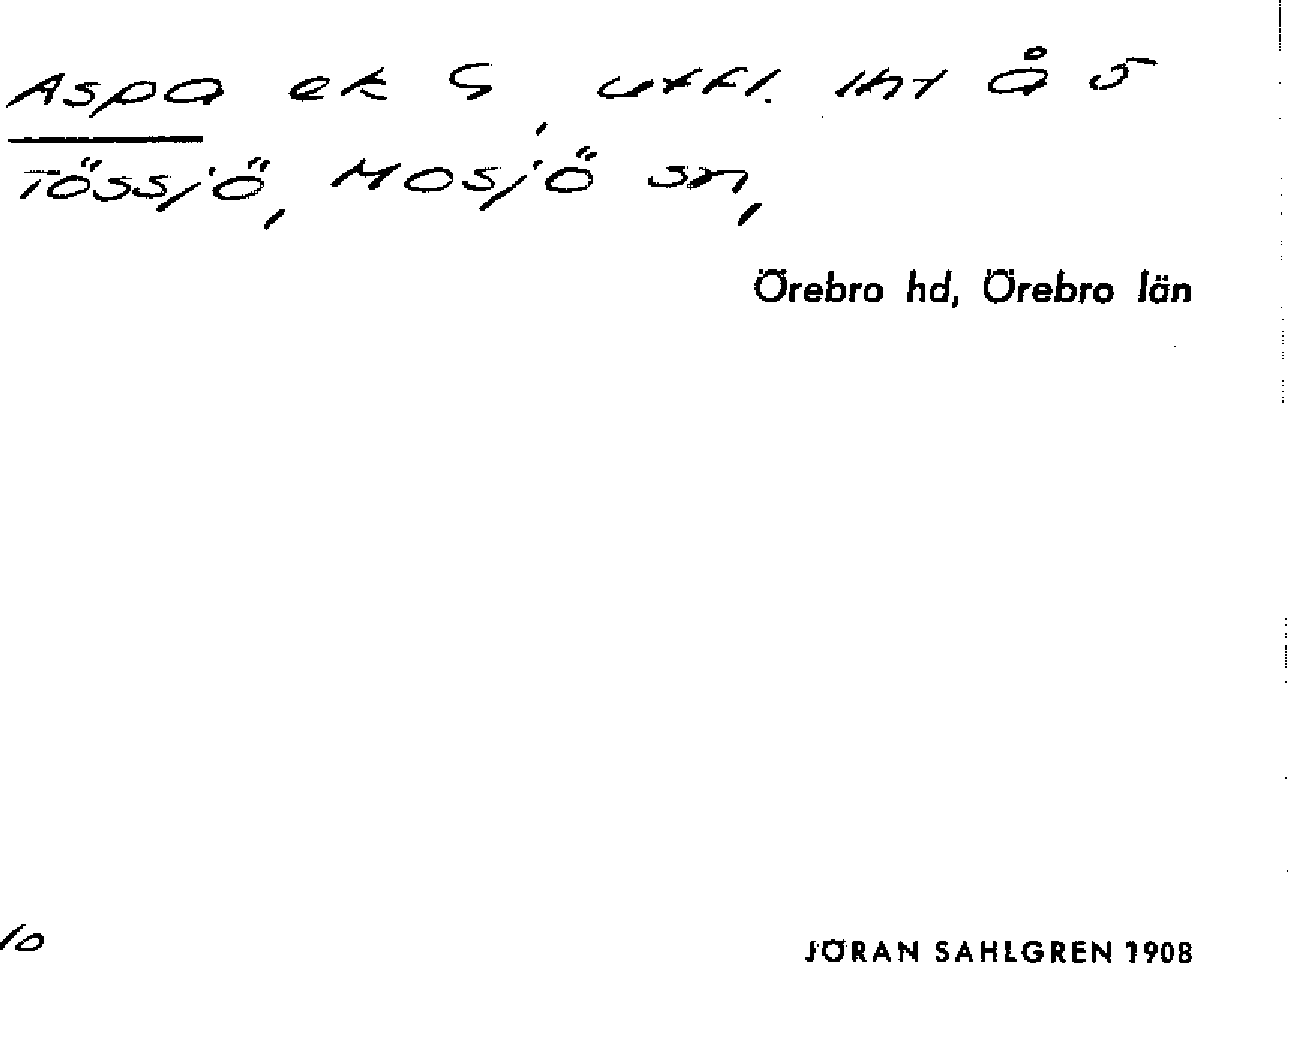 Aspa ek S, utfl. iht å 5
Tössjö, Mosjö sn,
Örebro hd, Örebro län
10
JÖRAN SAHLGREN 1908